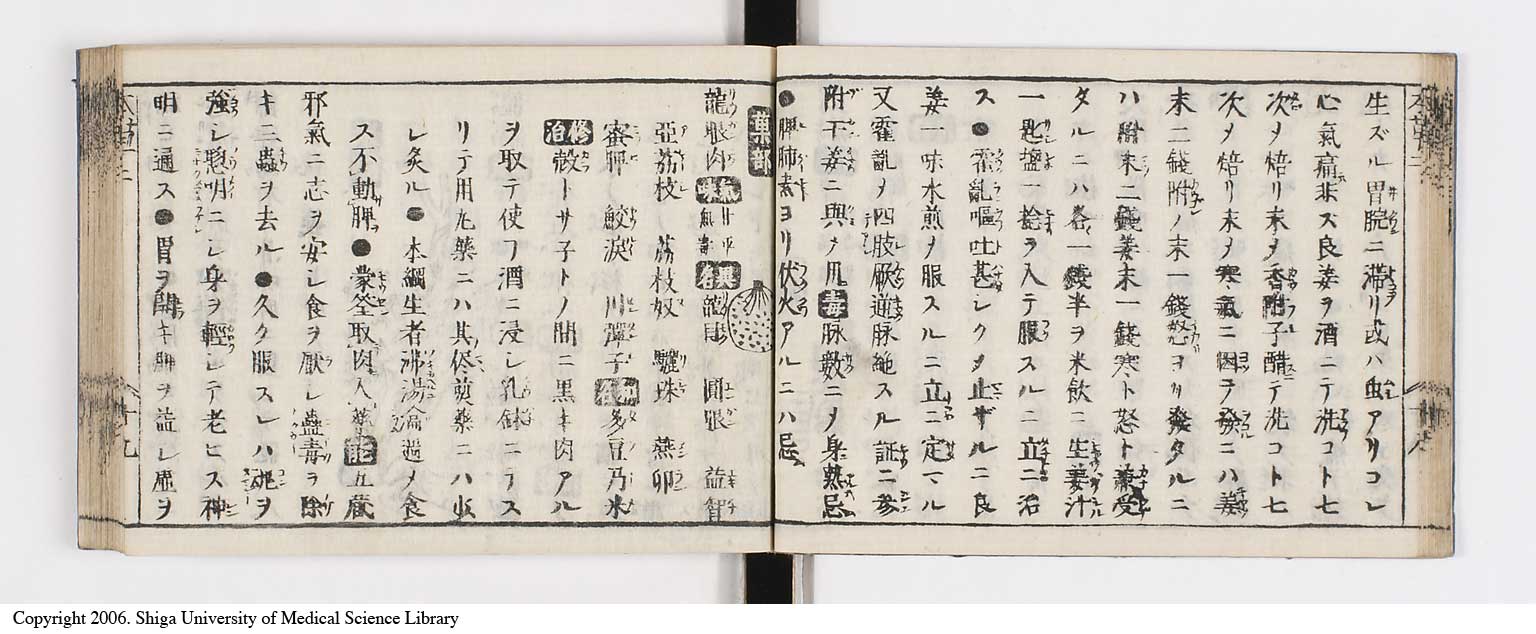 生ズル胃脘ニ滞リ或ハ虫アリコレ
心气痛非ス良姜ヲ酒ニテ洗コト七
次〆焙リ末〆香附子醋テ洗コト七
次〆焙リ末〆寒氣ニ因ヲ發ニハ姜
末二錢附ノ末一錢怒ヨリ發タルニ
ハ附末二錢姜末一錢寒ト怒ト兼受
タルニハ各一錢半ヲ米飲ニ生姜汁
一匙鹽一捻ヲ入テ服スルニ立ニ治
ス●霍亂嘔吐甚シク〆止ザルニ良
姜一味水煎ヲ服スルニ立ニ定マル
又霍亂〆四肢厥逆脉絶スル証ニ参
附干姜ニ與〆用毒脉數ニヲ身熱忌
●脾肺素ヨリ伏火アルニハ忌
菓部
龍眼肉氣味甘平無毒異名龍目 圓眼 益智
亞荔枝 荔枝奴 驪珠 燕卵
蜜脾 鮫涙 川彈子 多豆乃米
修治殻トサ子トノ間ニ黒キ肉アル
ヲ取テ使フ酒ニ浸シ乳鉢ニテス
リテ用丸藥ニハ其侭煎藥ニハ
シ炙ル●本綱生者沸湯瀹過〆食
ス不動脾●蒙筌取肉入藥能五臓
邪氣ニ志ヲ安シ食ヲ厭シ蠱毒ヲ除
キ三蟲ヲ去ル●久ク服スレハ魂ヲ
強シ聰明ニシ身ヲ輕シテ老ヒス神
明ニ通ス●胃ヲ開キ脾ヲ益シ虚ヲ
Copyright 2006. Shiga University of Medical Science Library